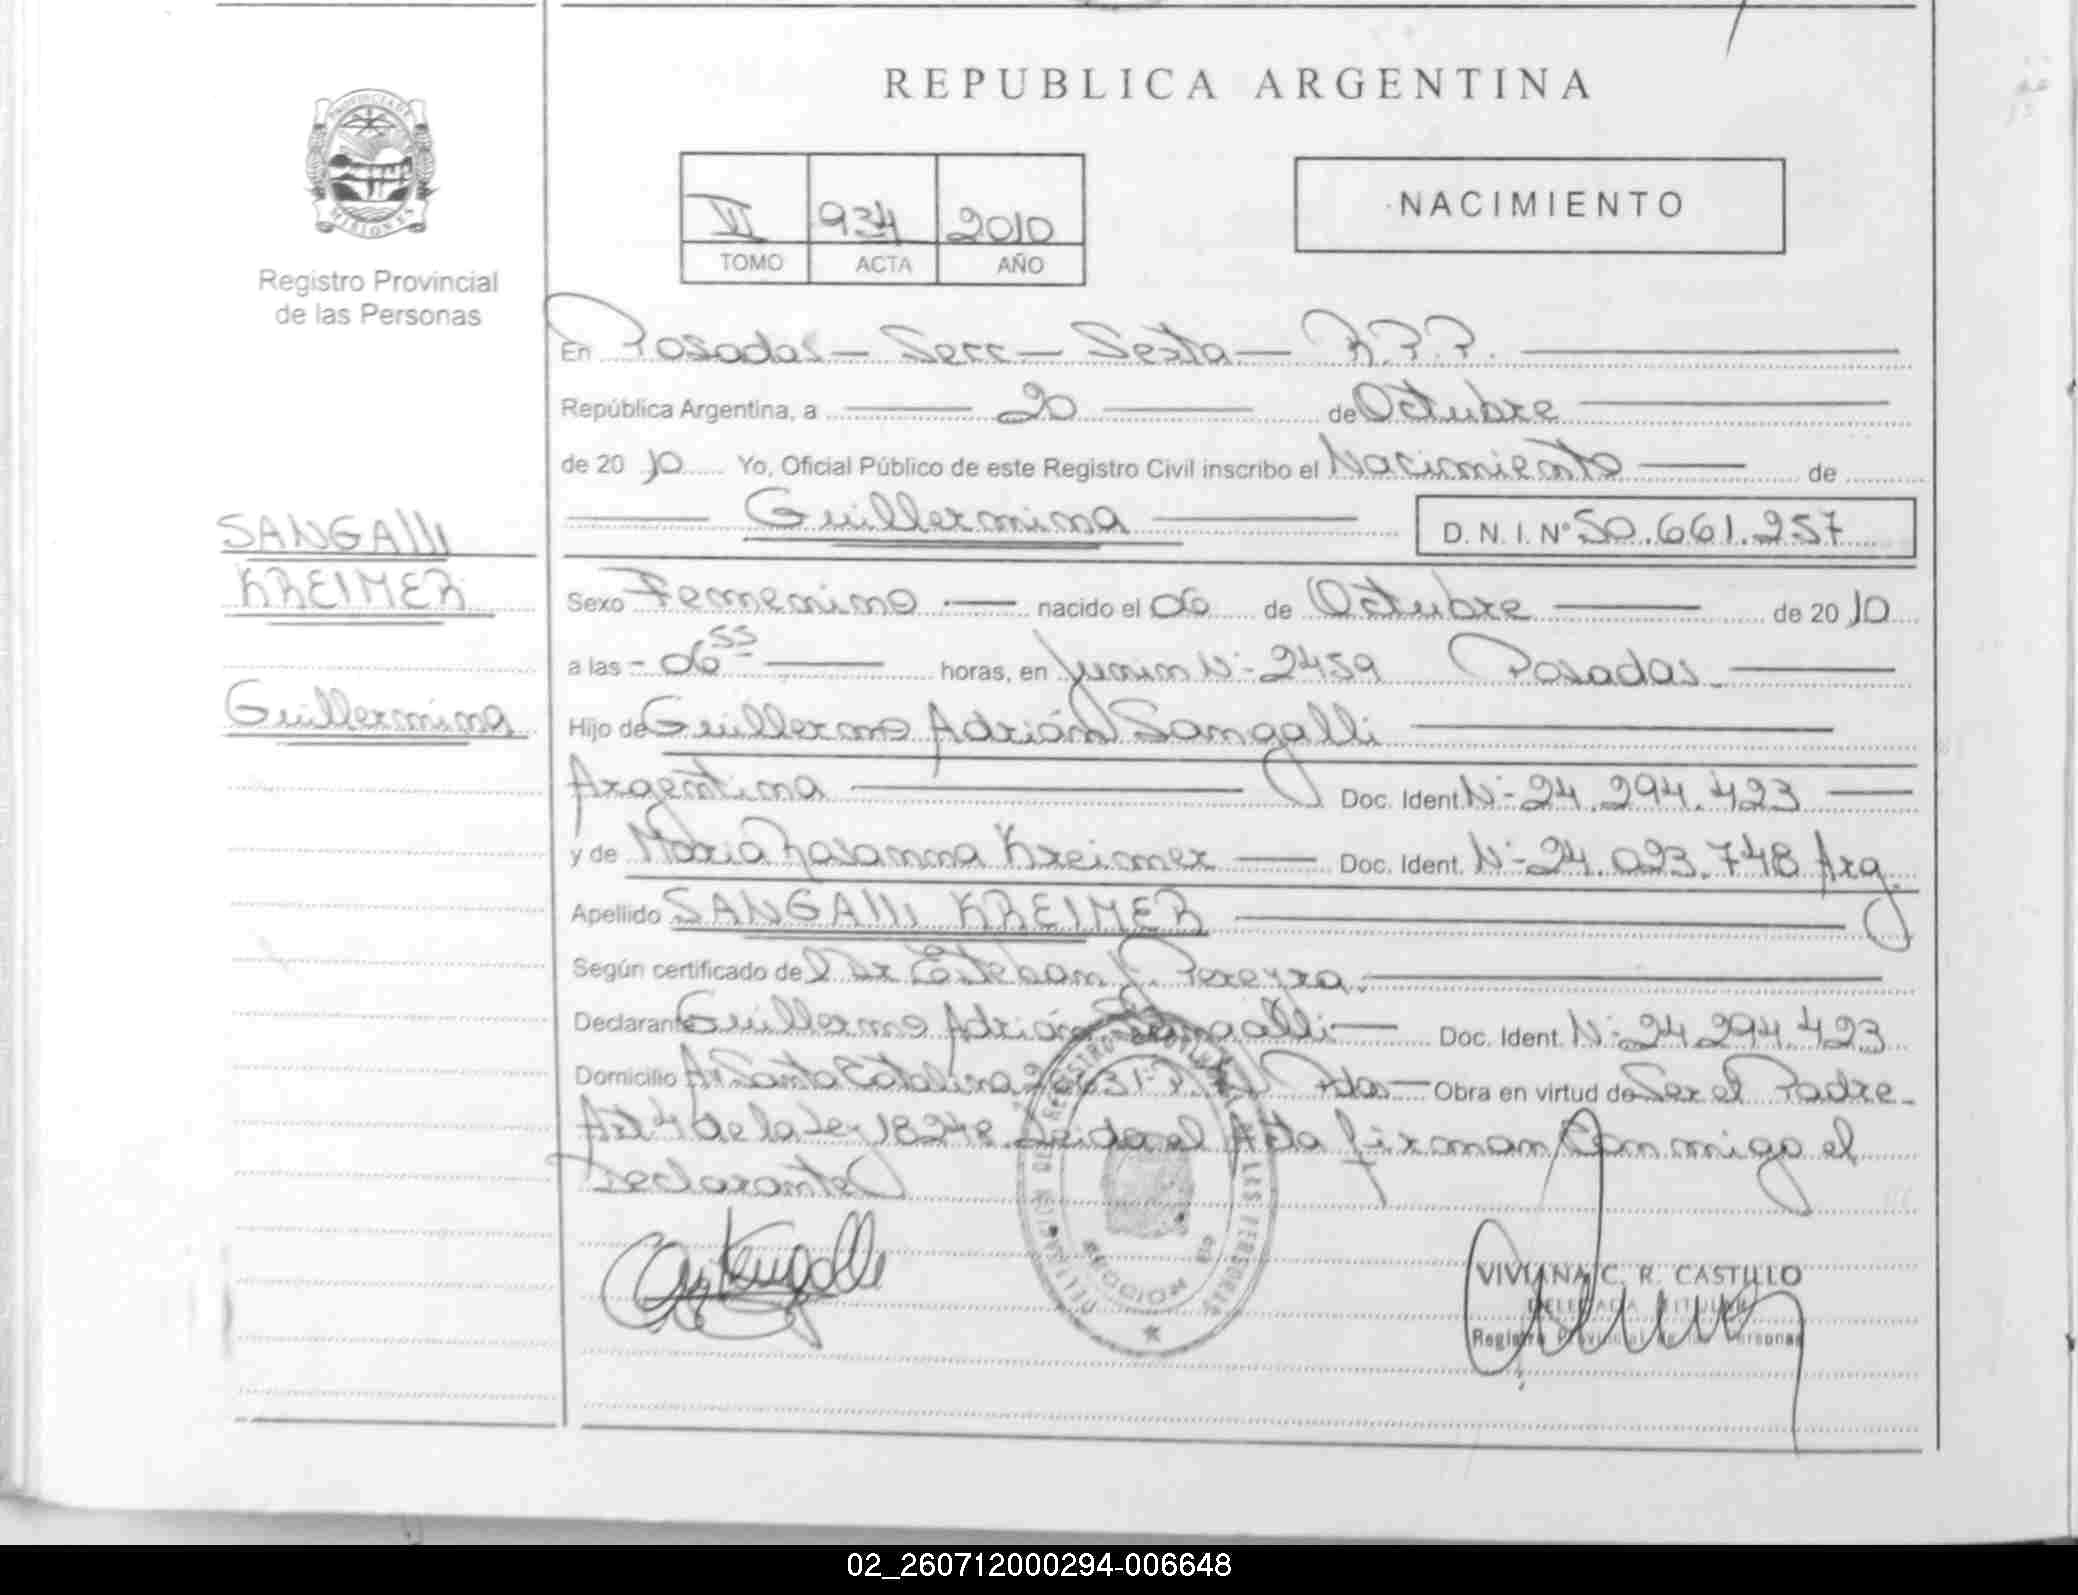 REPUBLICA ARGENTINA
PROVINCIA DE
MISIONES
Registro Provincial
de las Personas
VI 934 2010
TOMO ACTA AÑO
NACIMIENTO
En Posadas - Secc - Sexta - R.P.P.
República Argentina, a 20 de Octubre
de 2010 Yo, Oficial Público de este Registro Civil inscribo el Nacimiento de
Guillermina D. N. I. Nº 50.661.257
SANGAlli
KREIMER
Guillermina
Sexo Femenino nacido el 06 de Octubre de 2010
a las - 06 55 horas, en Junin Nº- 2459 Posadas
Hijo de Guillermo Adrián Sangalli
Argentina Doc. Ident. Nº- 24.294.423
y de Maria Rosanna Kreimer Doc. Ident. Nº- 24.023.748 Arg.
Apellido SANGAlli KREIMER
Según certificado de Dr Esteban J. Pereyra.
Declarante Guillermo Adrián Sangalli Doc. Ident. Nº- 24.294.423
Domicilio Av Santa Catalina Pdas - Obra en virtud de Ser el Padre -
Art 4 de la Ley 18248. Leida el Acta firman Conmigo el
Declarante
SECCION
VIVIANA C. R. CASTILLO
DELEGADA TITULAR
Registro Provincial de las Personas
02_260712000294-006648